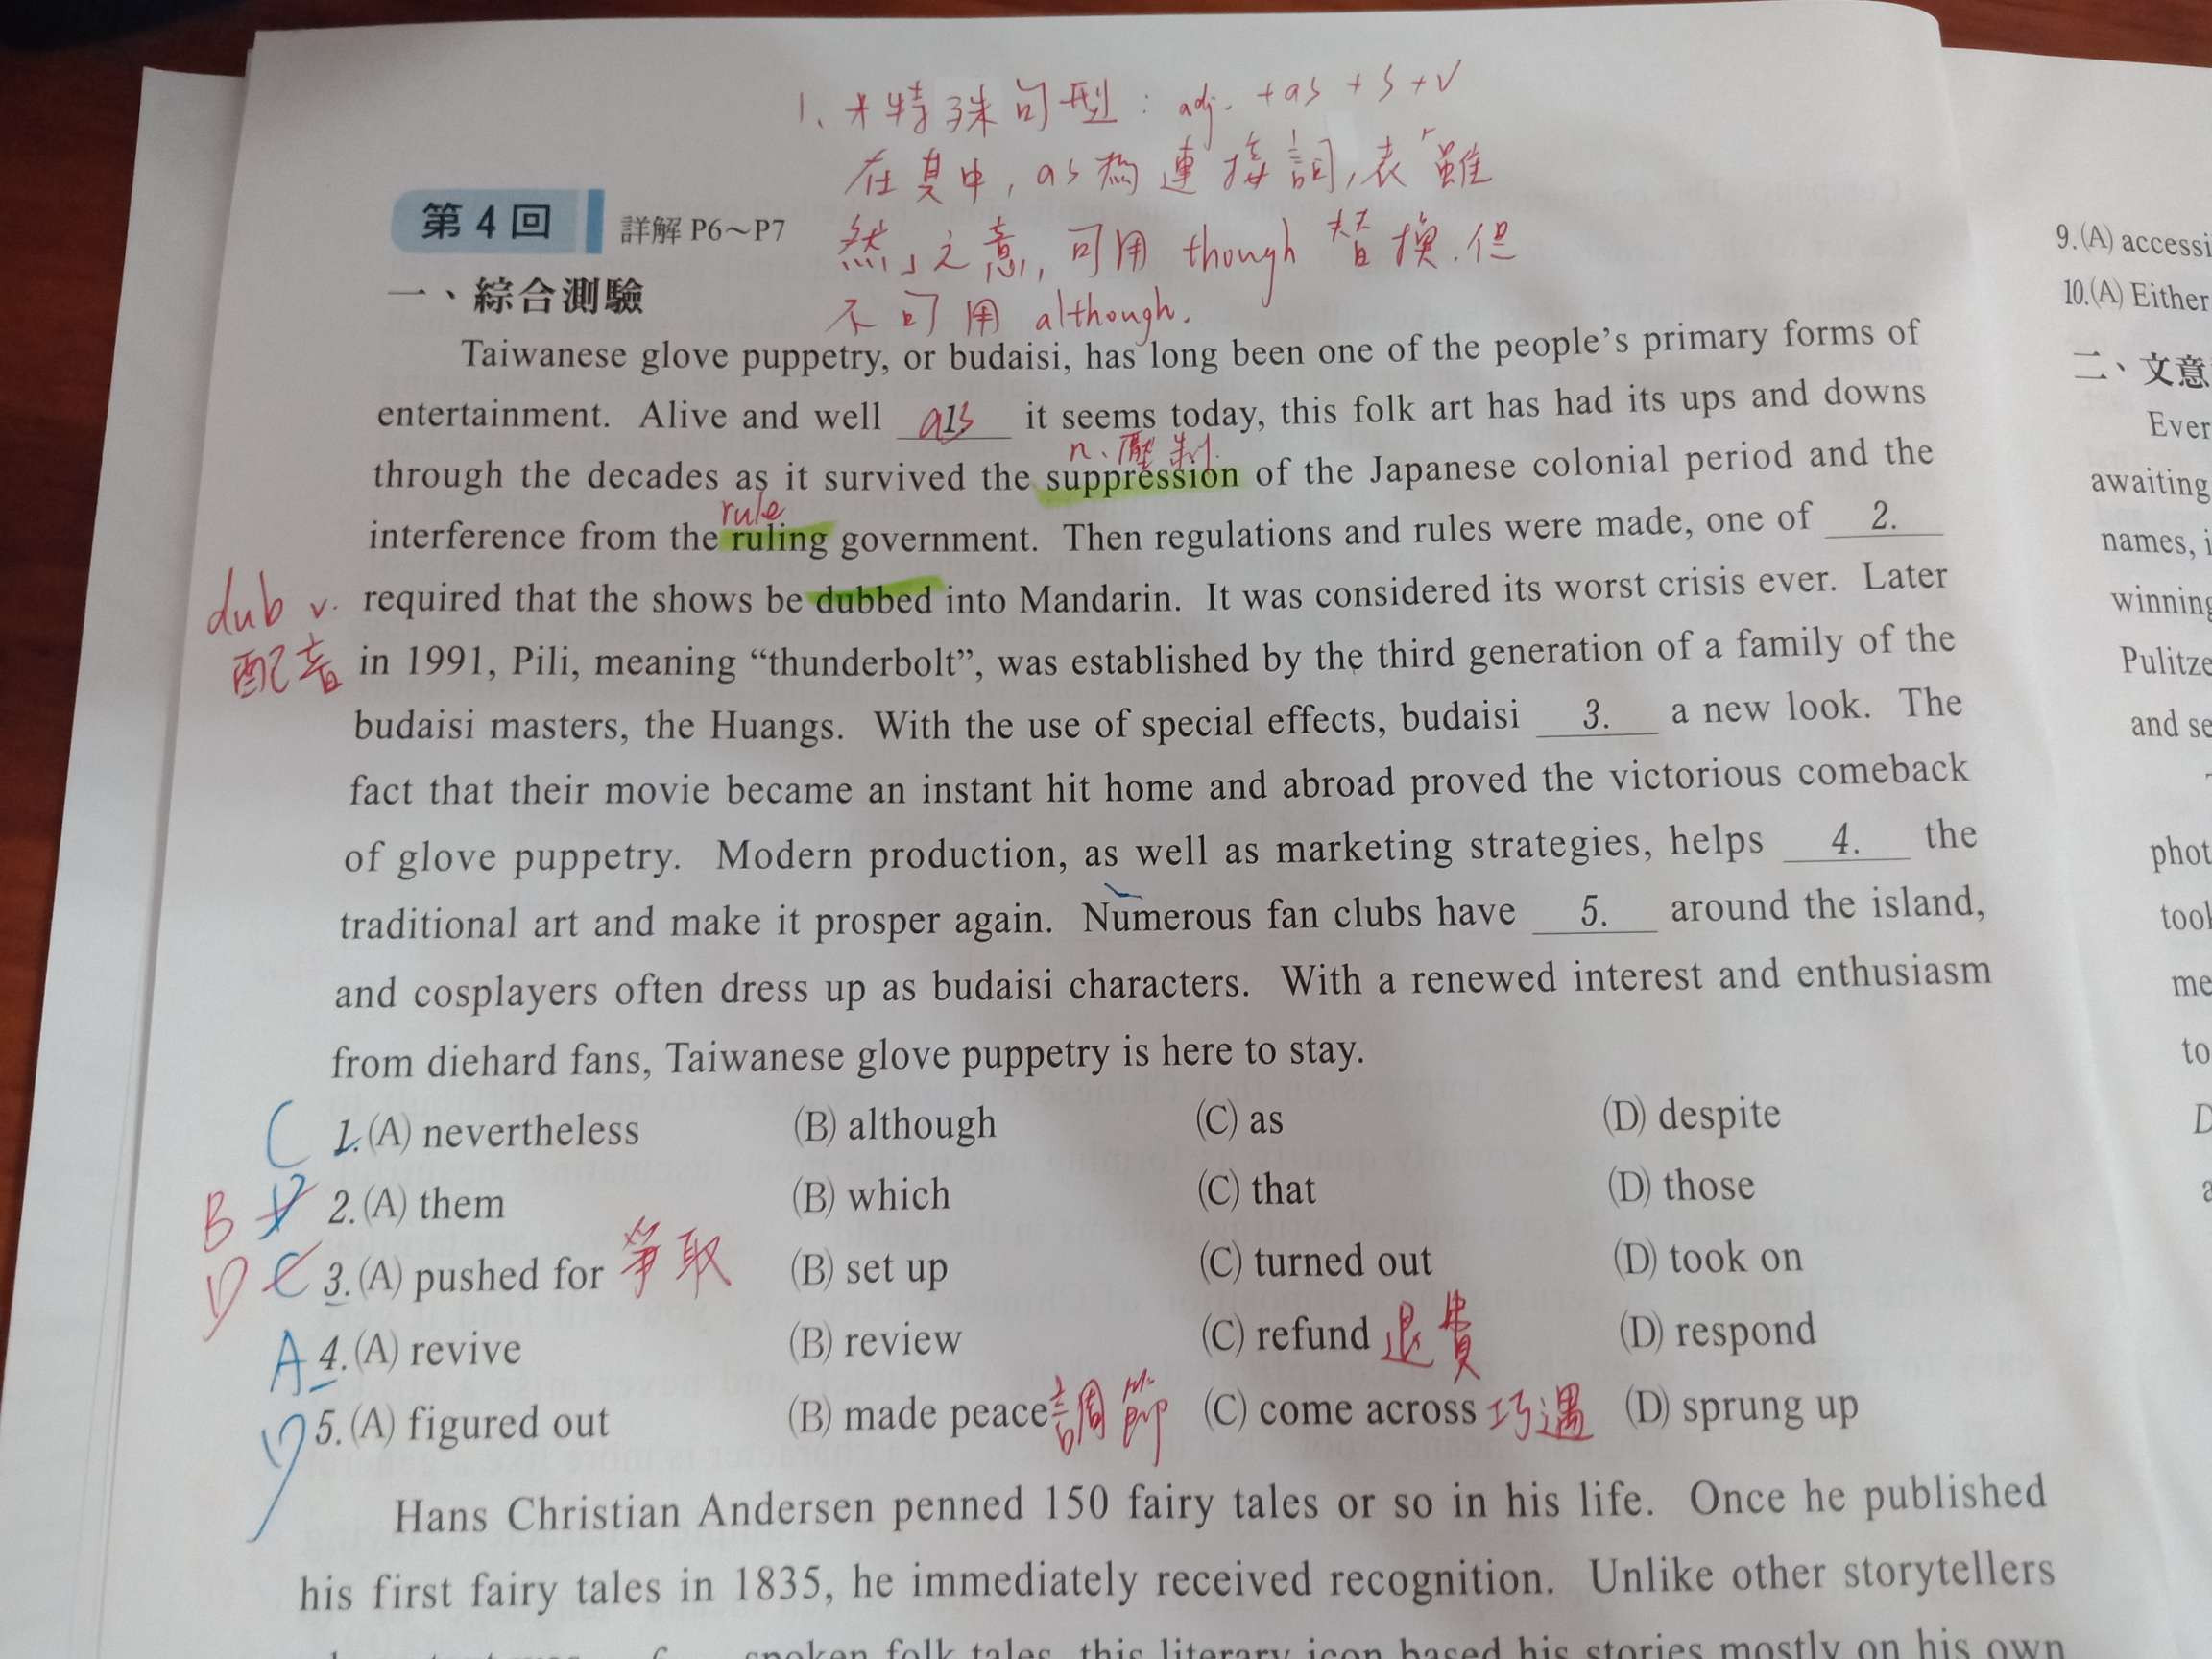 1、*特殊句型：adj. + as + S + V
在其中, as 為連接詞,表「雖
然」之意, 可用 though 替換.但
不可用 although.
第 4 回 詳解 P6～P7
一、綜合測驗
Taiwanese glove puppetry, or budaisi, has long been one of the people's primary forms of
entertainment. Alive and well as it seems today, this folk art has had its ups and downs
n、壓制.
through the decades as it survived the suppression of the Japanese colonial period and the
rule
interference from the ruling government. Then regulations and rules were made, one of 2.
dub v. required that the shows be dubbed into Mandarin. It was considered its worst crisis ever. Later
配音 in 1991, Pili, meaning “thunderbolt”, was established by the third generation of a family of the
budaisi masters, the Huangs. With the use of special effects, budaisi 3. a new look. The
fact that their movie became an instant hit home and abroad proved the victorious comeback
of glove puppetry. Modern production, as well as marketing strategies, helps 4. the
traditional art and make it prosper again. Numerous fan clubs have 5. around the island,
and cosplayers often dress up as budaisi characters. With a renewed interest and enthusiasm
from diehard fans, Taiwanese glove puppetry is here to stay.
C 1.(A) nevertheless (B) although (C) as (D) despite
B D 2.(A) them (B) which (C) that (D) those
D C 3.(A) pushed for 爭取 (B) set up (C) turned out (D) took on
A 4.(A) revive (B) review (C) refund 退費 (D) respond
D 5.(A) figured out (B) made peace 調節 (C) come across 巧遇 (D) sprung up
Hans Christian Andersen penned 150 fairy tales or so in his life. Once he published
his first fairy tales in 1835, he immediately received recognition. Unlike other storytellers
spoken folk tales, this literary icon based his stories mostly on his own
9.(A) accessi
10.(A) Either
二、文意
Ever
awaiting
names, i
winning
Pulitze
and se
phot
tool
me
to
D